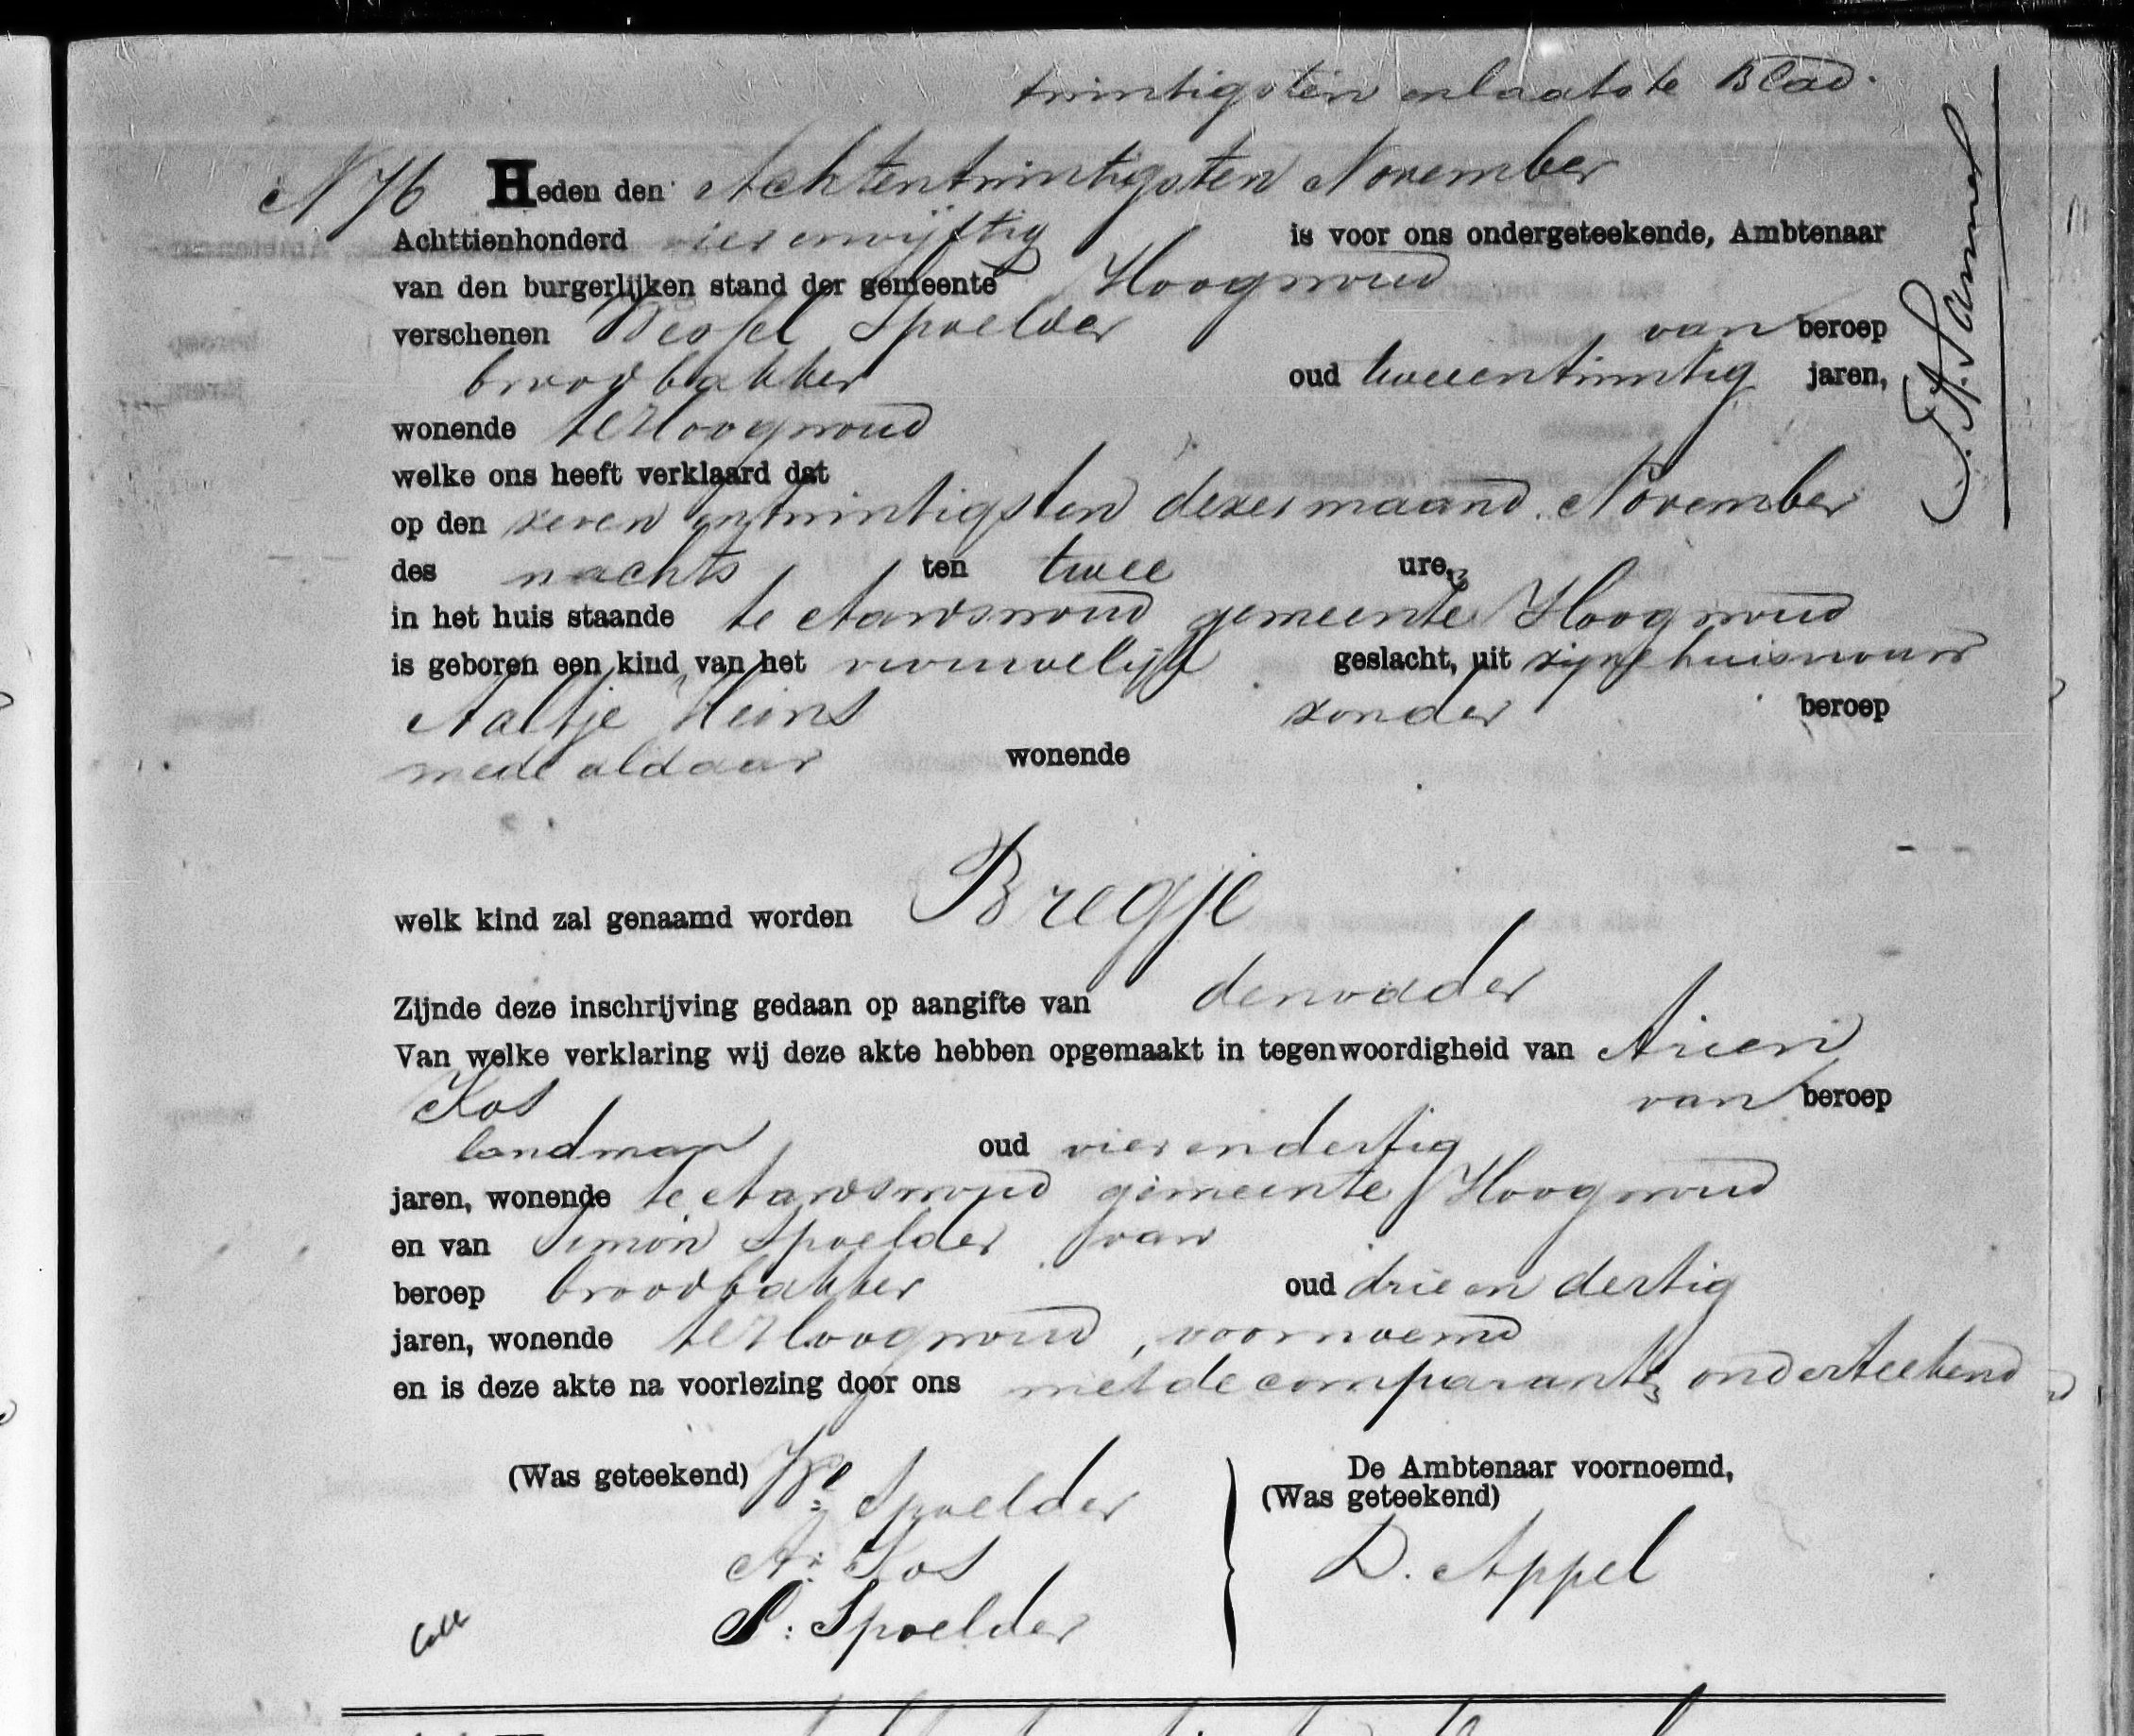 twintigsten en laatste Blad.
N 76 Heden den Achtentwintigsten November
Achttienhonderd vier en vijftig is voor ons ondergeteekende, Ambtenaar
van den burgerlijken stand der gemeente Hoogwoud
verschenen Wessel Spoelder van beroep
broodbakker oud tweeentwintig jaren,
wonende te Hoogwoud
welke ons heeft verklaard dat
op den zeven entwintigsten dezer maand November
des nachts ten twee ure,
in het huis staande te Aardswoud gemeente Hoogwoud
is geboren een kind van het vrouwelijk geslacht, uit zijne huisvrouw
Aaltje Heins zonder beroep
mede aldaar wonende
welk kind zal genaamd worden Bregje
Zijnde deze inschrijving gedaan op aangifte van den vader
Van welke verklaring wij deze akte hebben opgemaakt in tegenwoordigheid van Arien
Kos van beroep
landman oud vier en dertig
jaren, wonende te Aardswoud gemeente Hoogwoud
en van Simon Spoelder van
beroep broodbakker oud drie en dertig
jaren, wonende te Hoogwoud, voornoemd
en is deze akte na voorlezing door ons met de comparante onderteekend
(Was geteekend) Wl Spoelder
A: Kos
S: Spoelder
De Ambtenaar voornoemd,
(Was geteekend)
D. Appel
Coll